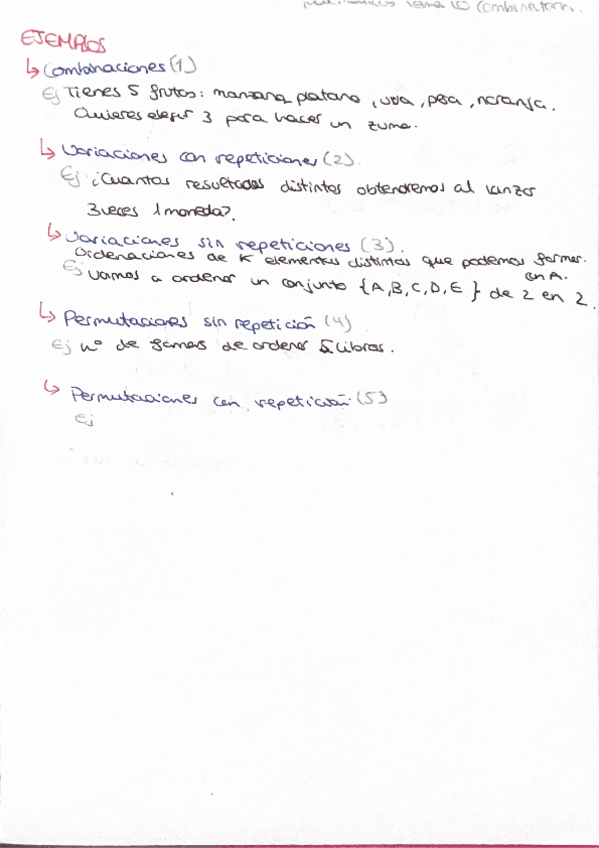 Tema 10 Combinatori.
EJEMPLOS
↳ Combinaciones (1)
Ej Tienes 5 frutos: manzana, platano, uva, pera, naranja.
Quieres elegir 3 para hacer un zumo.
↳ Variaciones con repeticiones (2).
Ej ¿Cuantos resultados distintos obtendremos al lanzar
3 veces 1 moneda?.
↳ Variaciones sin repeticiones (3).
Ordenaciones de K elementos distintos que podemos formar
en A.
Ej Vamos a ordenar un conjunto {A, B, C, D, E} de 2 en 2.
↳ Permutaciones sin repetición (4)
Ej nº de formas de ordenar 5 libros.
↳ Permutaciones con repetición (5)
Ej